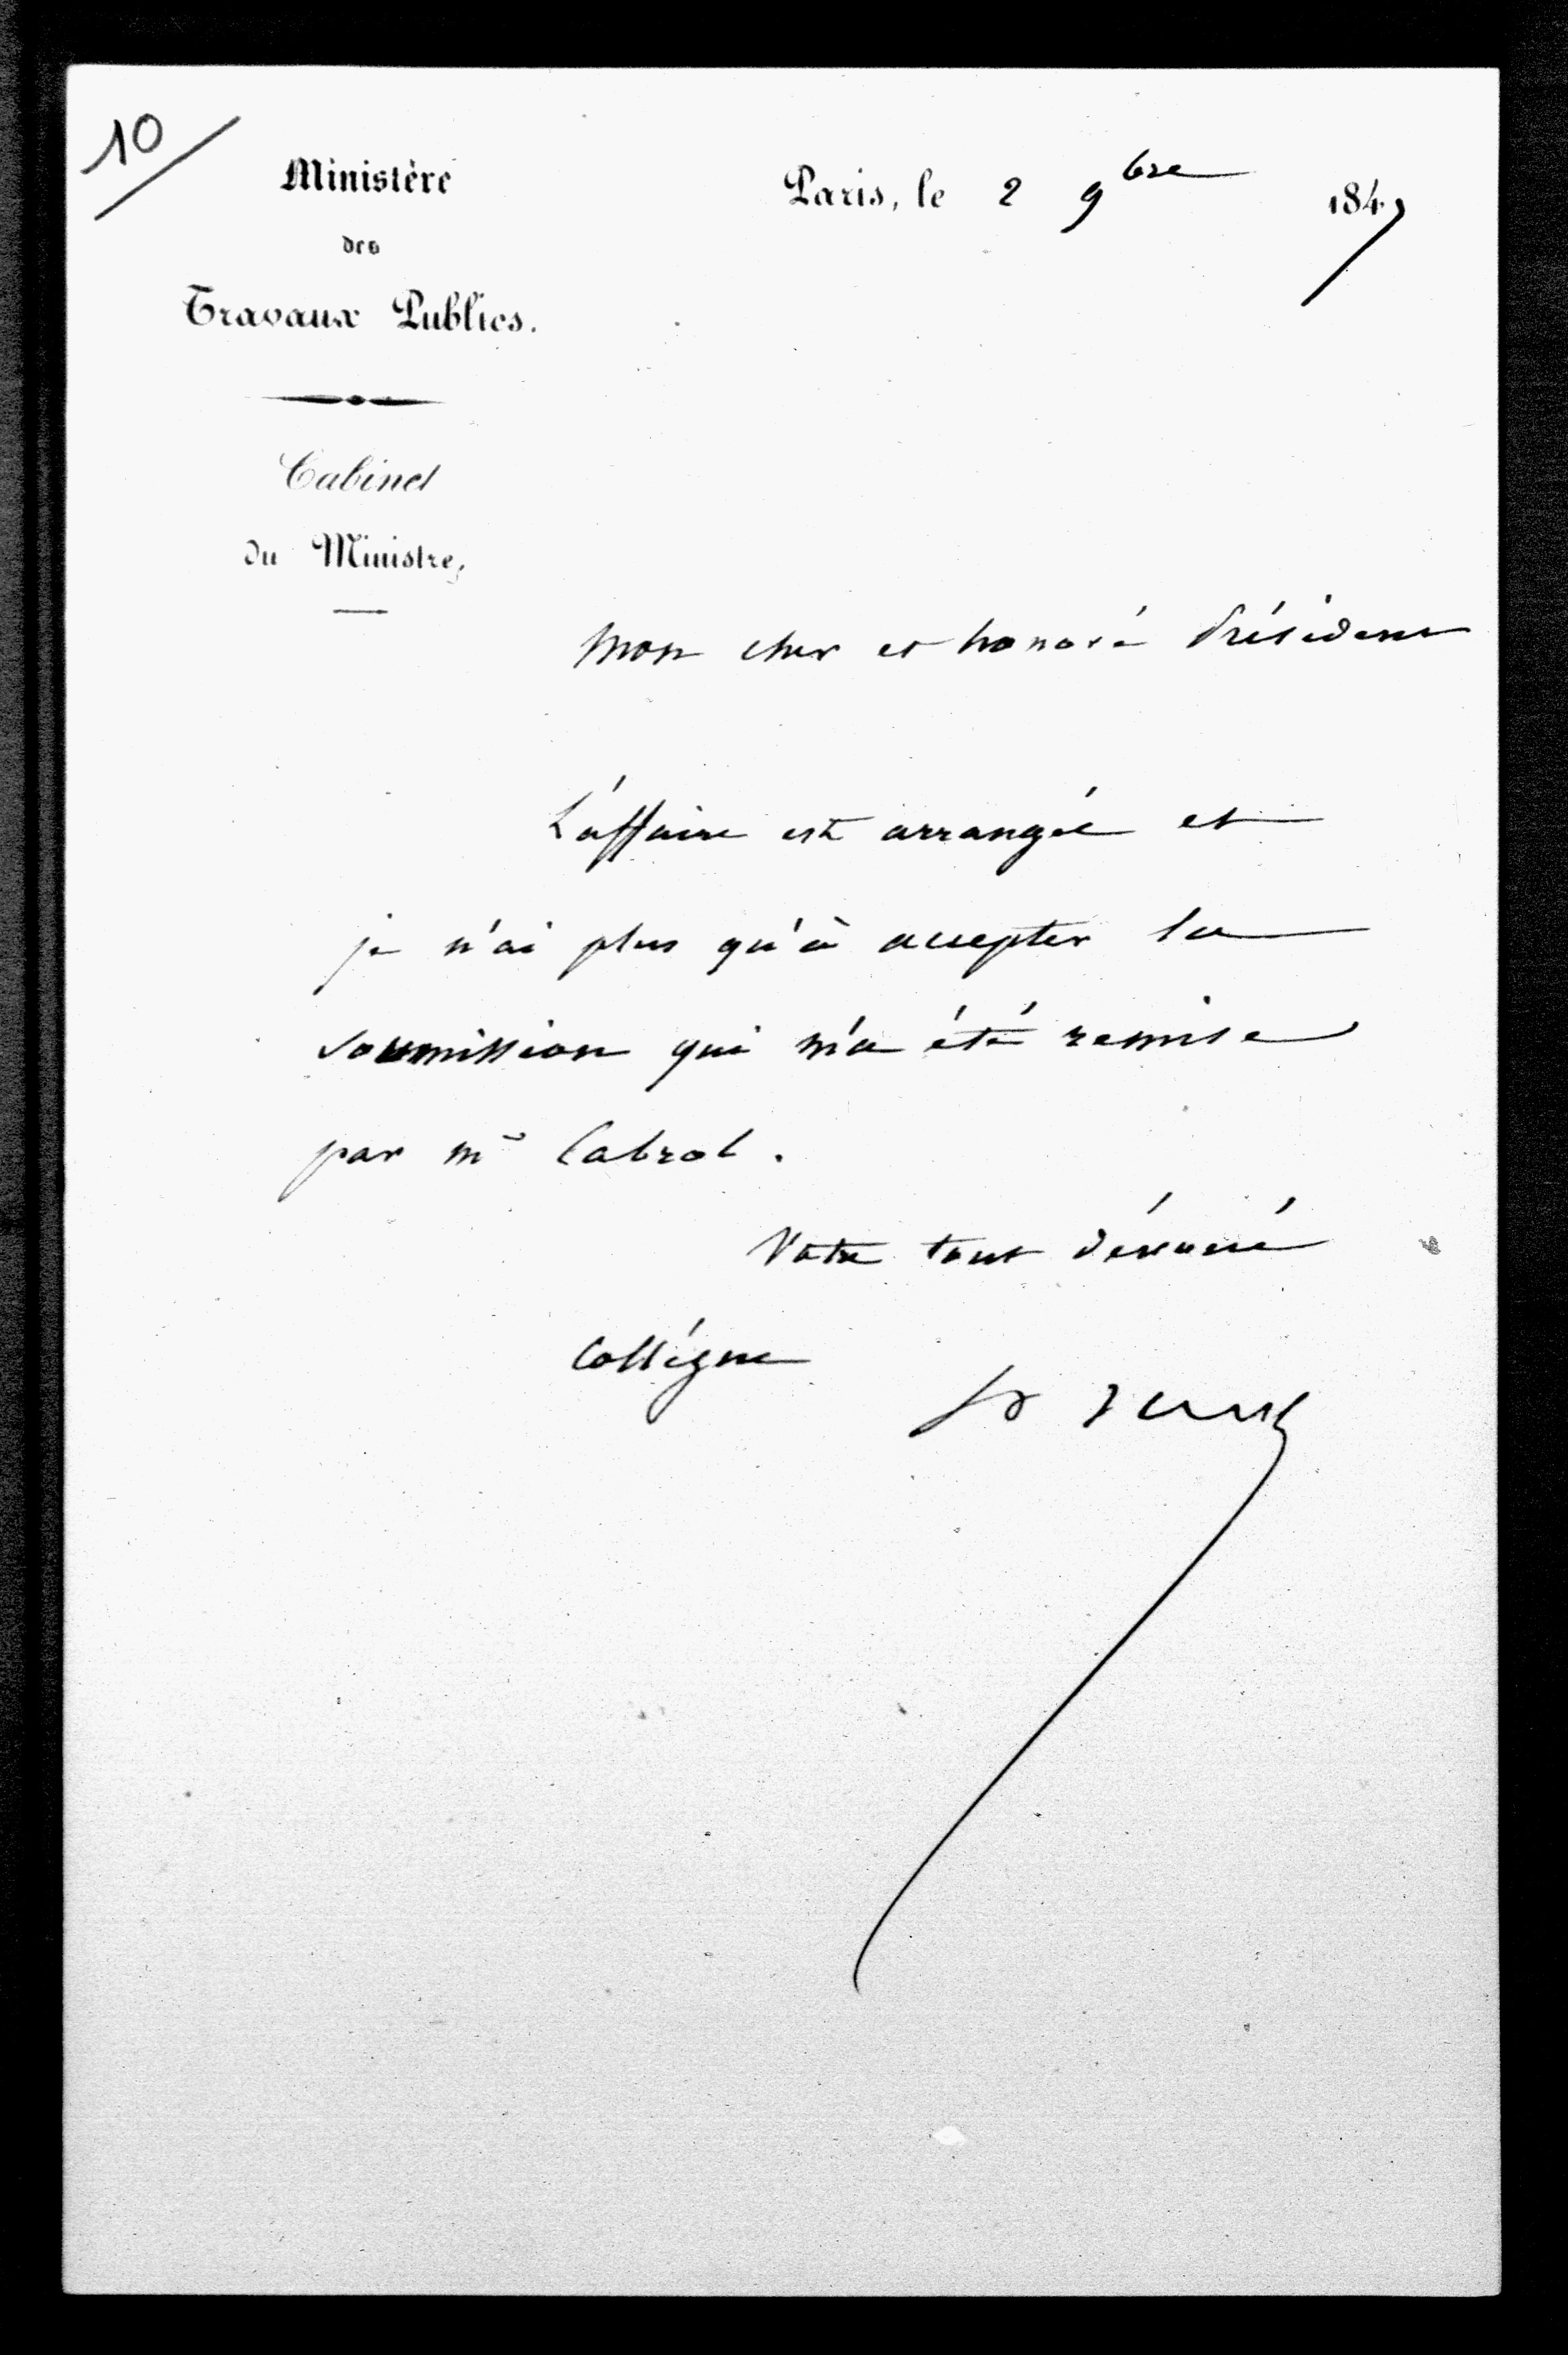 10
Ministère
des
Travaux Publics.
Cabinet
du Ministre,
Paris, le 2 9bre 1847
Mon cher et honoré Président
L'affaire est arrangée et
je n'ai plus qu'à accepter la
soumission qui m'a été remise
par Mr Cabrol.
Votre tout dévoué
Collègue